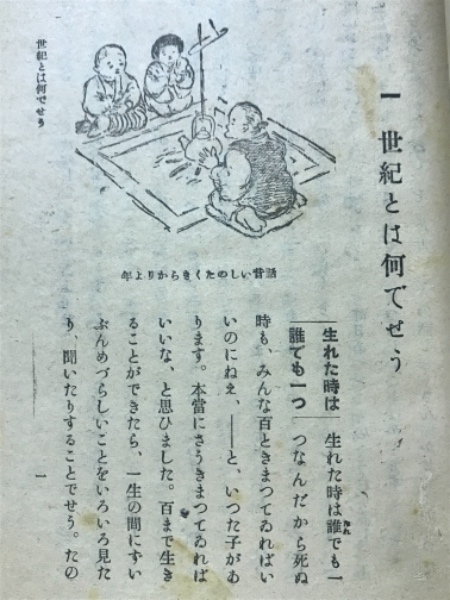 世紀とは何でせう
一 世紀とは何でせう
年よりからきくたのしい昔話
生れた時は
誰でも一つ
生れた時は誰でも一
つなんだから死ぬ
時も、みんな百ときまつてゐればい
いのにねえ、――と、いつた子があ
ります。本當にさうきまつてゐれば
いいな、と思ひました。百まで生き
ることができたら、一生の間にずい
ぶんめづらしいことをいろいろ見た
り、聞いたりすることでせう。たの
一